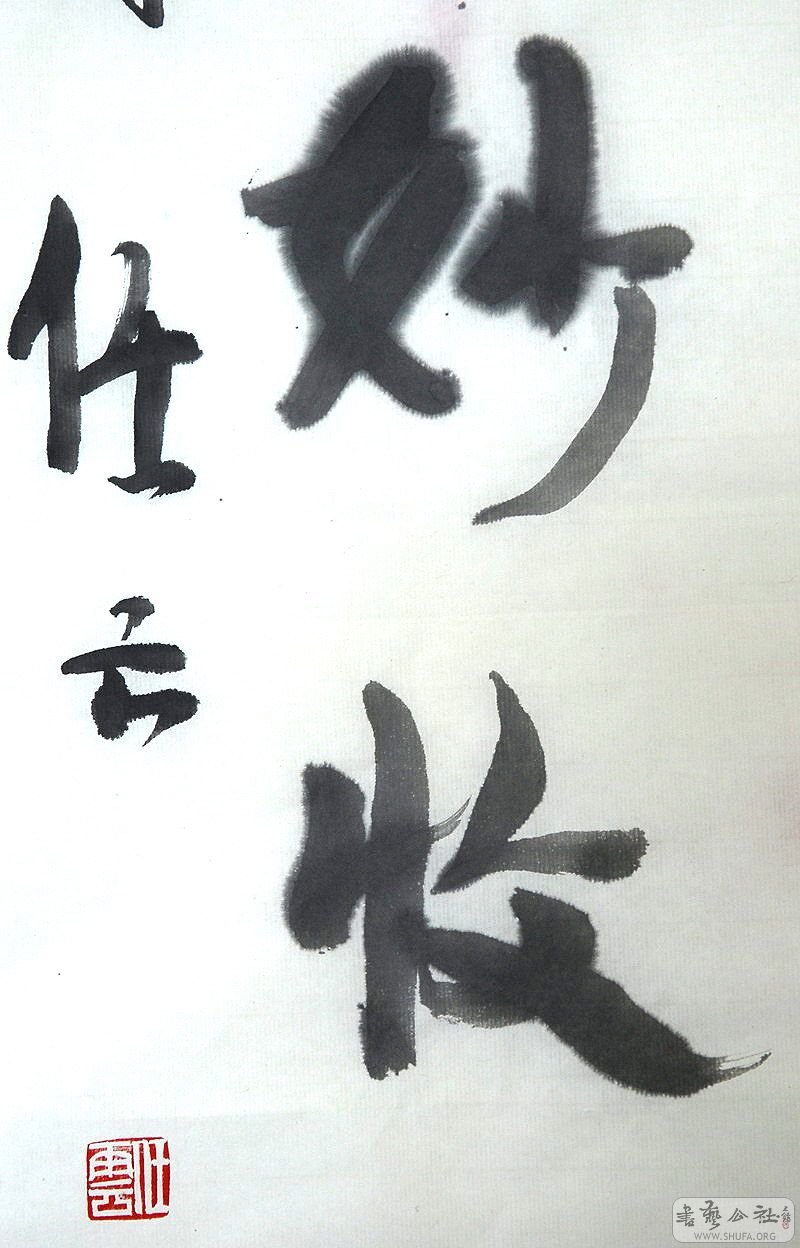 妙收
任云
任雲
書藝公社
WWW.SHUFA.ORG